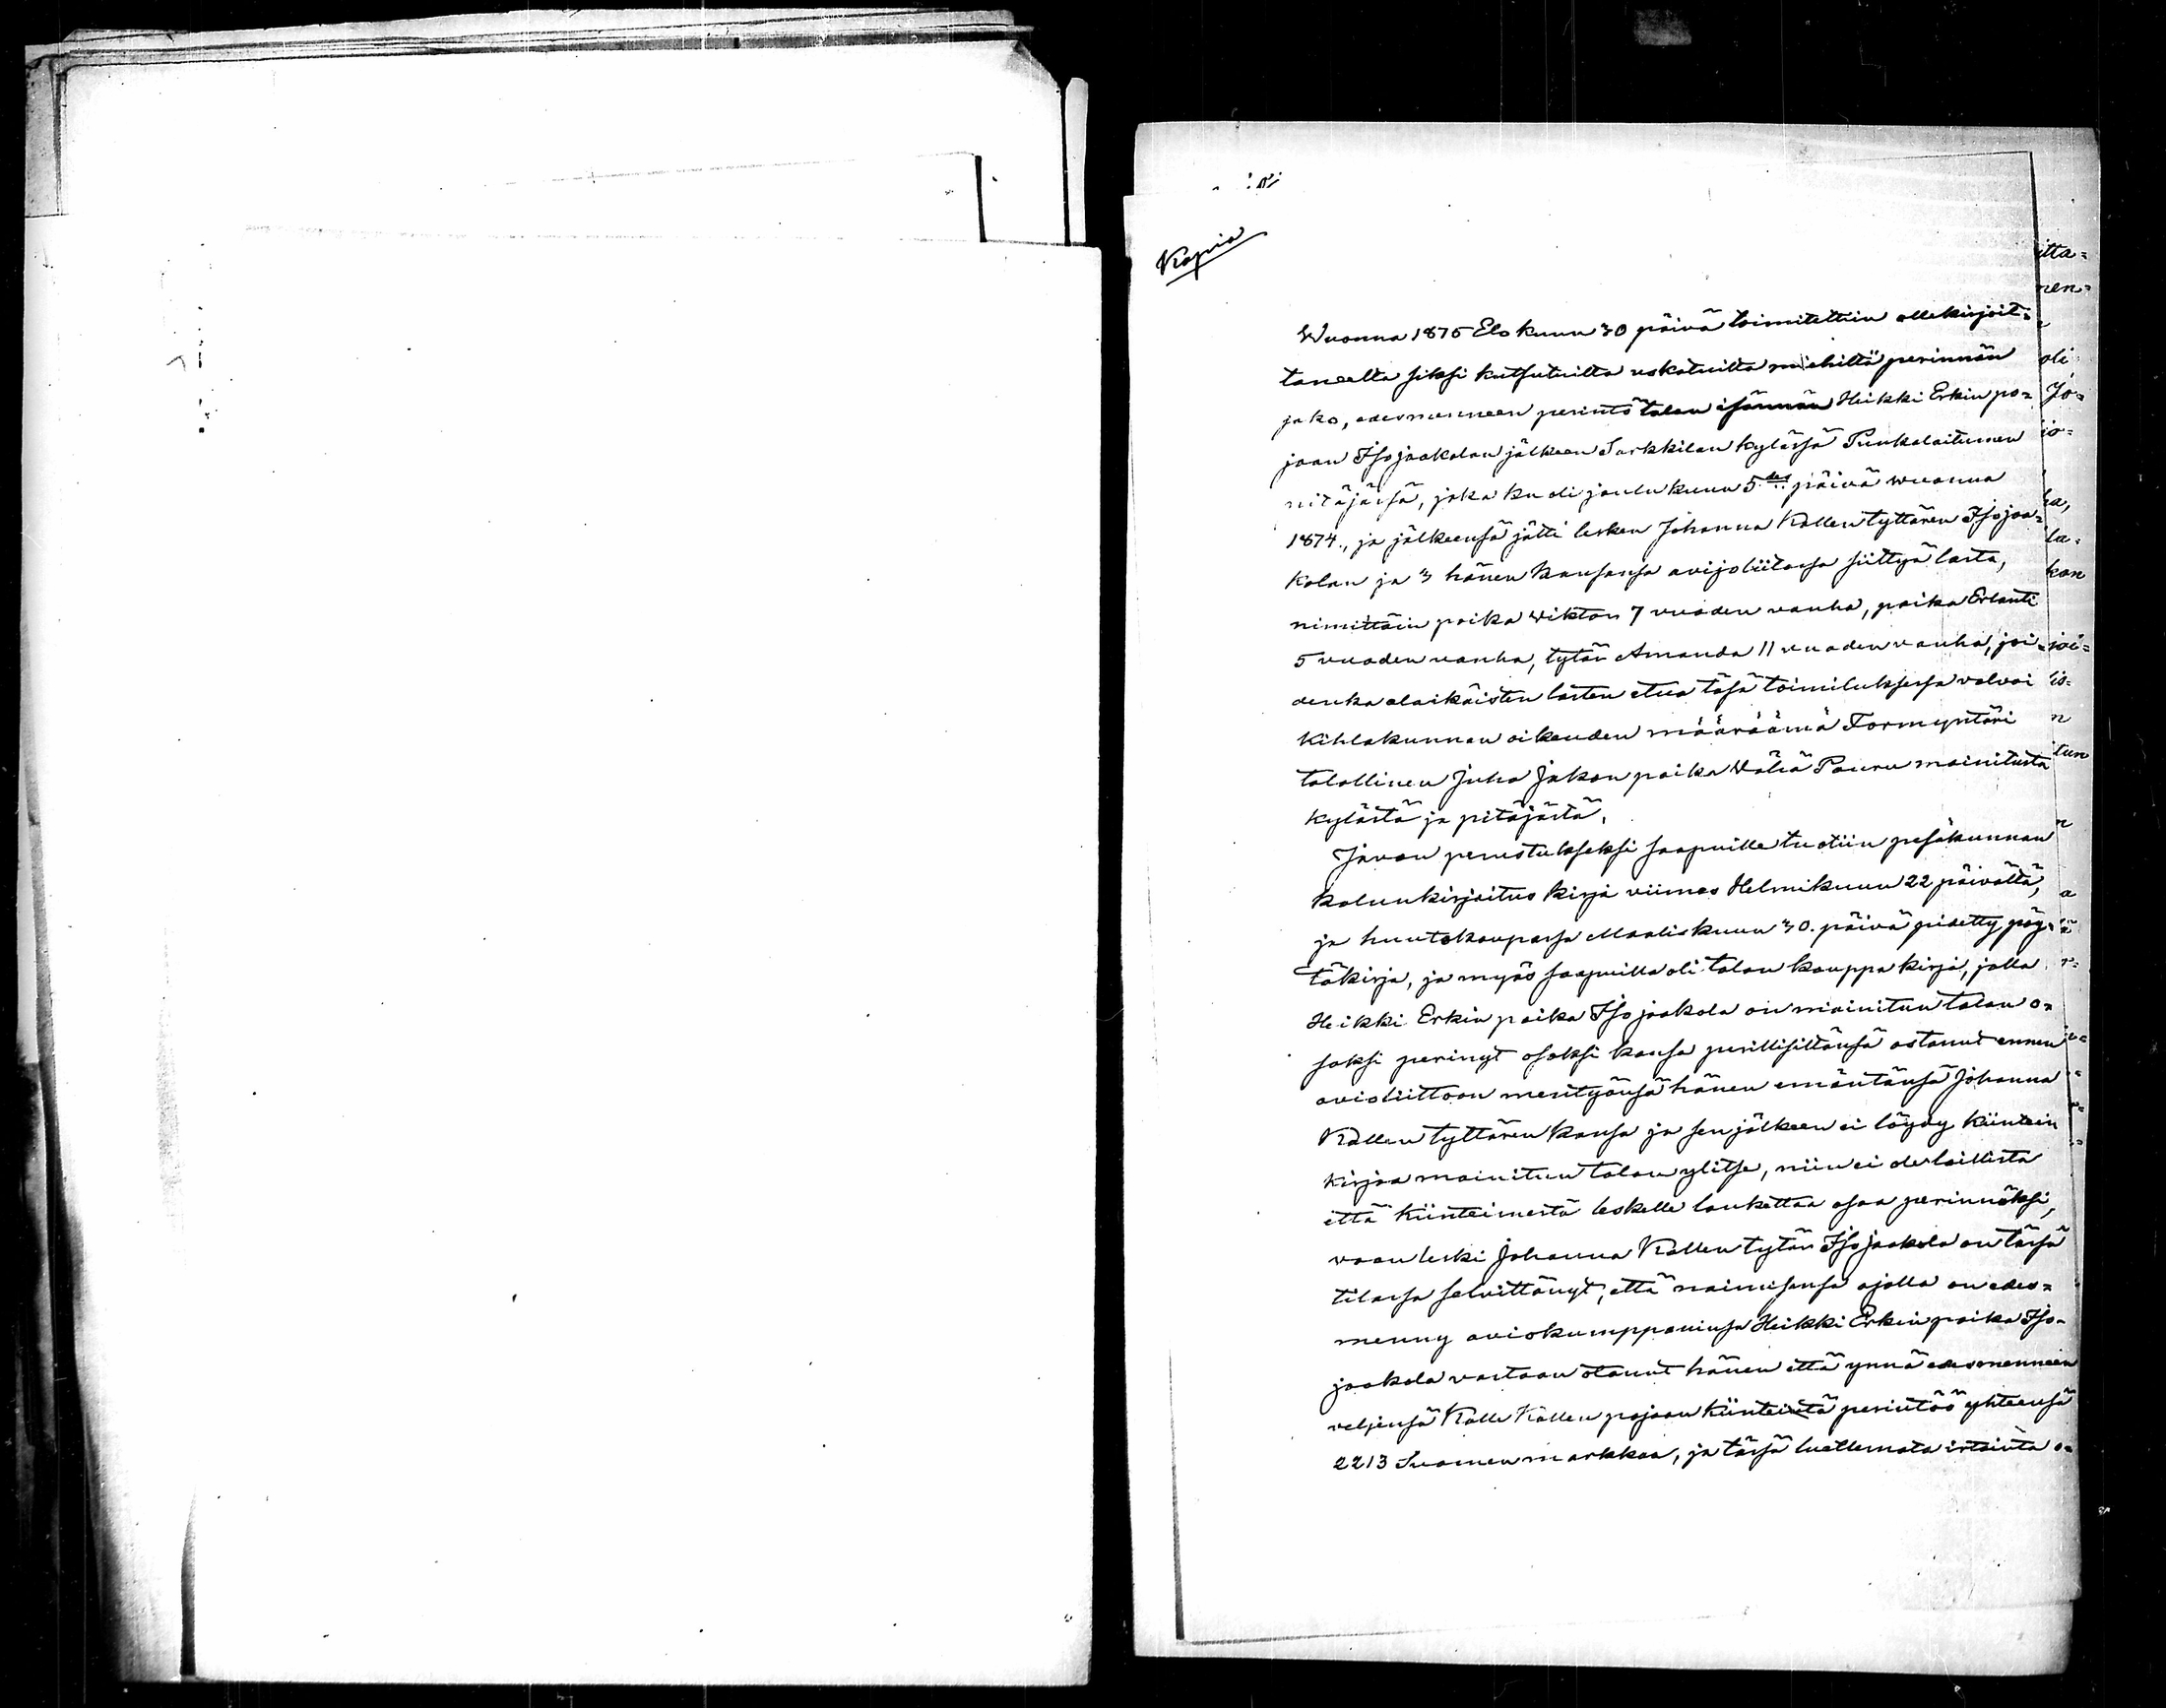 Kopia
Wuonna 1875 Elokuun 30 päivä toimitettiin allekirjoit=
taneelta siksi kutsutuilta uskotuilta miehiltä perinnön
jako, edesmenneen perintötalan isännän Heikki Erkin po=
jaan Isojaakolan jälkeen Sarkkilan kylässä Punkalaitumen
pitäjässä, joka kuoli joulukuun 5des päivä wuonna
1874., ja jälkeensä jätti lesken Johanna Kallen tyttären Isojaa=
kolan ja 3 hänen kansansa avijoliitossa siittyä lasta,
nimittäin poika Wiktor 7 vuoden vanha, poika Erlanti
5 vuoden vanha, tytär Amanda 11 vuoden vanha, joi=
denka alaikäisten lasten etua täsä toimituksessa valvoi
Kihlakunnan oikeuden määräämä Formyntäri
talollinen Juha Jakon poika Wähä Pauru mainitusta
kylästä ja pitäjästä.
Jawon perustukseksi saapuille tuotiin pesäkunnan
kalunkirjoitus kirja viimes Helmikuun 22 päivältä,
ja huutokaupassa Maaliskuun 30. päivä pidetty pöy=
täkirja, ja myös saapuilla oli talon kauppa kirja, jolla
Heikki Erkin poika Isojaakola on mainitun talon o=
saksi perinyt osaksi kansa perillisiltänsä ostanut ennen
avioliittoon mentyänsä hänen emäntänsä Johanna
Kallen tyttären kansa ja sen jälkeen ei löydy kiintein
kirjaa mainitun talon ylitse, niin ei ole laillista
että kiinteimestä leskelle lankettaa osaa perinnöksi,
vaan leski Johanna Kallen tytär Isojaakola on tässä
tilassa selvittänyt, että naimisensa ajolla on edes=
menny aviokumppaninsa Heikki Erkin poika Iso=
jaakola vastaan otanut hänen että ynnä edesmenneen
veljensä Kalle Kallen pojaan kiinteintä perintöö yhteensä
2213 Suomen markkaa, ja tässä luettemata irtainta o=
itta=
nen=
oli
Jo=
io=
ha,
la=
kon
joi=
is=
n
itun
n
a
ä
r=